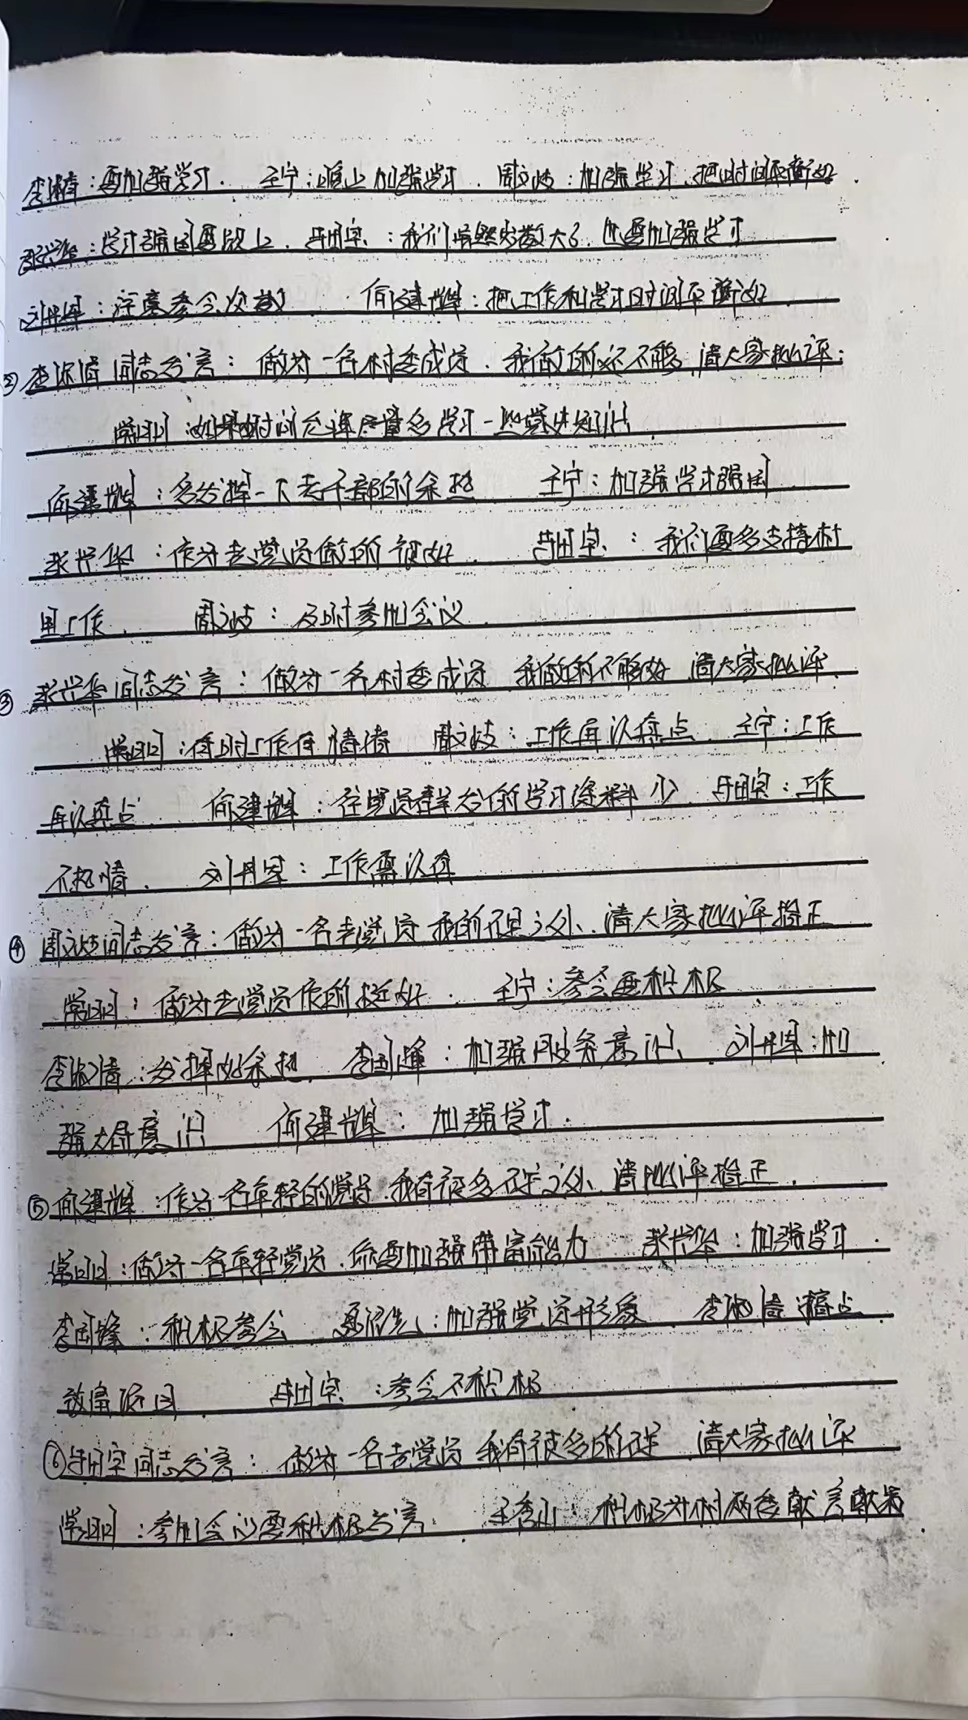 李淑清：要加强学习． 王宁：晚上加强学习．周文岐：加强学习，把时间平衡好．
张兴华：学习强国要跟上．：我们虽然岁数大了，也要加强学习
刘丹军：注意参会次数 何建辉：把工作和学习时间平衡好．
② 李淑清同志发言：做为一名村委成员．我做的还不够，请大家批评：
常明明：如果时间允许尽量多学习一些党史知识．
何建辉：多发挥一下老干部的余热 王宁：加强学习强国
张兴华：作为老党员做的很好． ：我们要多支持村
里工作． 周文岐：及时参加会议．
③ 张兴华同志发言：做为一名村委成员 我做的不够好，请大家批评．
：有时工作有情绪 周文岐：工作再认真点． 王宁：工作
再认真点 何建辉：在党员群发的学习资料少． ：工作
不热情． 刘丹军：工作要认真
④ 周文岐同志发言：做为一名老党员 我的不足之处、请大家批评指正
：做为老党员作的挺好． 王宁：参会要积极
李淑清：发挥好余热． 李国锋：加强服务意识、 刘丹军：加
强大局意识 何建辉：加强学习．
⑤ 何建辉：作为一名年轻的党员．我有很多不足之处、请批评指正．
：做为一名年轻党员．你要加强带富能力 张兴华：加强学习．
李国锋：积极参会 ：加强党员形象． 李淑清：搞点
致富项目． ：参会不积极
⑥ 同志发言：做为一名老党员 我有很多的不足 请大家批评
：参加会议要积极发言． 积极对村两委献言献策